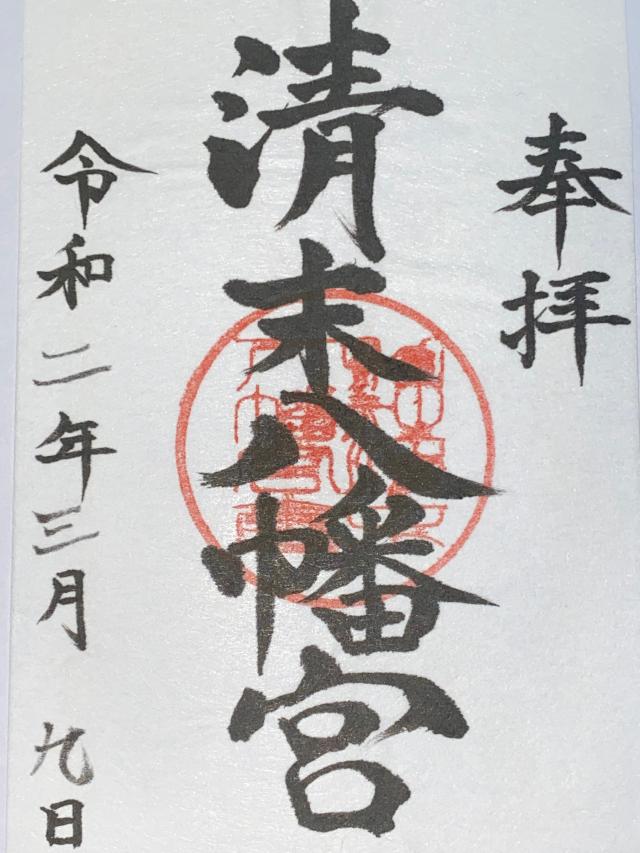 奉拝
清末八幡宮
令和二年三月九日